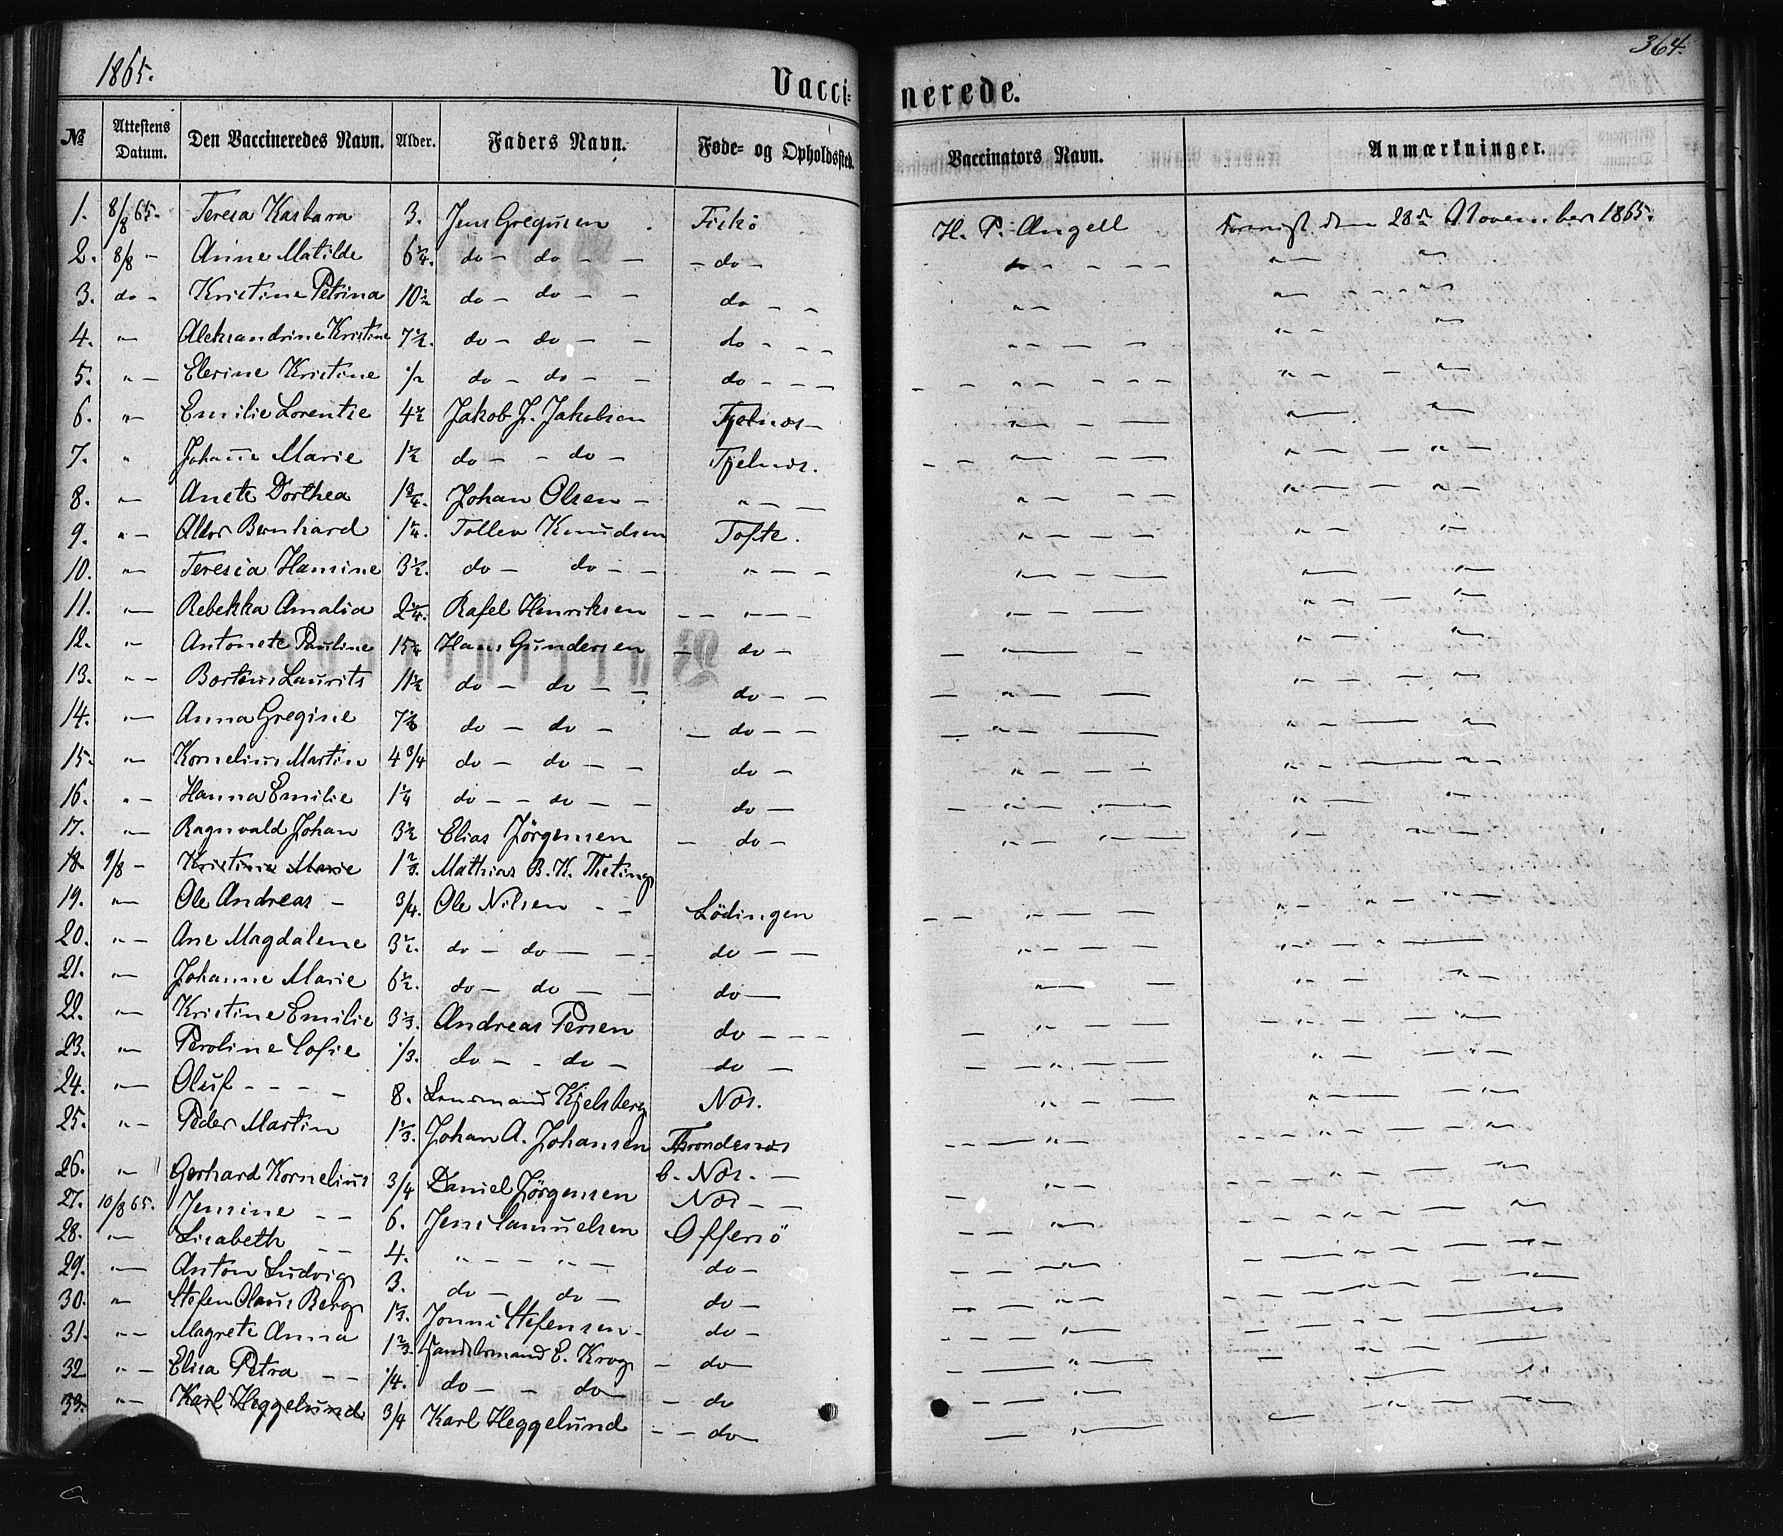 1865.
364.
Vacci-nerede.
№ Attestens Datum. Den Vaccineredes Navn. Alder. Faders Navn. Føde- og Opholdssted. Vaccinators Navn. Anmærkninger.
1. 8/8 65. Teresa Karbara 3. Jens Gregusen Fiskö H. P. Angell den 28de November 1865.
2. 8/8 — Anne Matilde 6 1/4. do — do — — — do — " — — — " — " —
3. do — Kristine Petrina 10 1/2 do — do — — do — — " — " — — — " —
4. " — Aleksandrine Kristine 7 1/2. do — do — — do — — — " — — — " — " —
5. " — Elerine Kristine 1/2 do — do — — do — — — — — " — — — " — — " —
6. " — Emilie Lorentse 4 1/2 Jakob J. Jakobsen Fjelnæs — " — — — " — " —
7. " Johanne Marie 1 1/2 do — — do — Fjelnæs. — — " — — — " — — " —
8. " — Anete Dorthea 1 3/4. Johan Olsen — " — — " — — — " — — " —
9. " — Bernhard 1 1/4. Tollev Knudsen Tofte. " — — — " — " —
10. " — Teresia Hansine 3 1/2. do — do — — " — — " — — — " — " —
11. " — Rebekka Amalia 2 1/4. Rafel Henriksen — — " — — " — — " — — " —
12. " — Antonete Pauline 15 1/4 Hans Gundersen — do — — " — — " — " —
13. " — Laurits 11 1/2 do — do — — do — — — " — — " — — " —
14. " — Anna Gregine 7 1/2 do — do — — do — — — " — — " — — " —
15. " — Kornelius Martin 4 3/4 do — do — — do — " — — — " — — " —
16. " — Hanna Emilie 1 1/4 do — — do — — do — — " — " — " — " —
17. " — Ragnvald Johan 3 1/2 Elias Jörgensen — do — " — " — " — " —
18. 9/8 — Kristine Marie 1 2/3. Mathias B. K. Theting
19. " — Ole Andreas — 3/4. Ole Nilsen — — Lödingen — — " — — — " — " — " —
20. " — Ane Magdalene 3 1/2. do — do — — — do — — " — — — " — — " —
21. " — Johanne Marie 6 1/2. do — do — — do — " — — " — " —
22. " — Kristine Emilie 3 1/3. Andreas Persen do — — — — " — — — " — " —
23. " — Peroline Sofie 1/3. do — — do — do — — — " — — " — — " —
24. " — Oluf — — — 8. Lensmand Kjelsberg Næs. " — — — " — " —
25. " — Peder Martin 1 1/3. Johan A. Johansen Throndenæs — — " — — — — " — " —
26. " Gerhard Kornelius 3/4 Daniel Jörgensen b. Næs. — — " — — " — " —
27. 10/8 65. Jensine — — 6. Jens Samuelsen Næs — — " — — — — " —
28. " — Lisabeth — — 4. " — — " — Offersö — — " — — — — " —
29. " — Anton Ludvig 3. do — do — do — — — " — — — — " —
30. " — Stefen Olaus Berg 1 1/3. Jonni Stefensen — do — — " — — —
31. " — Magrete Anna 1 2/3. Handelsmand E. Krog do — — " — — —
32 " — Elisa Petra — — 1/4. do — — do — — do — — " — — " — " —
33. " — Karl Heggelund 3/4 Karl Heggelund — do — — " — — " —
— — do —